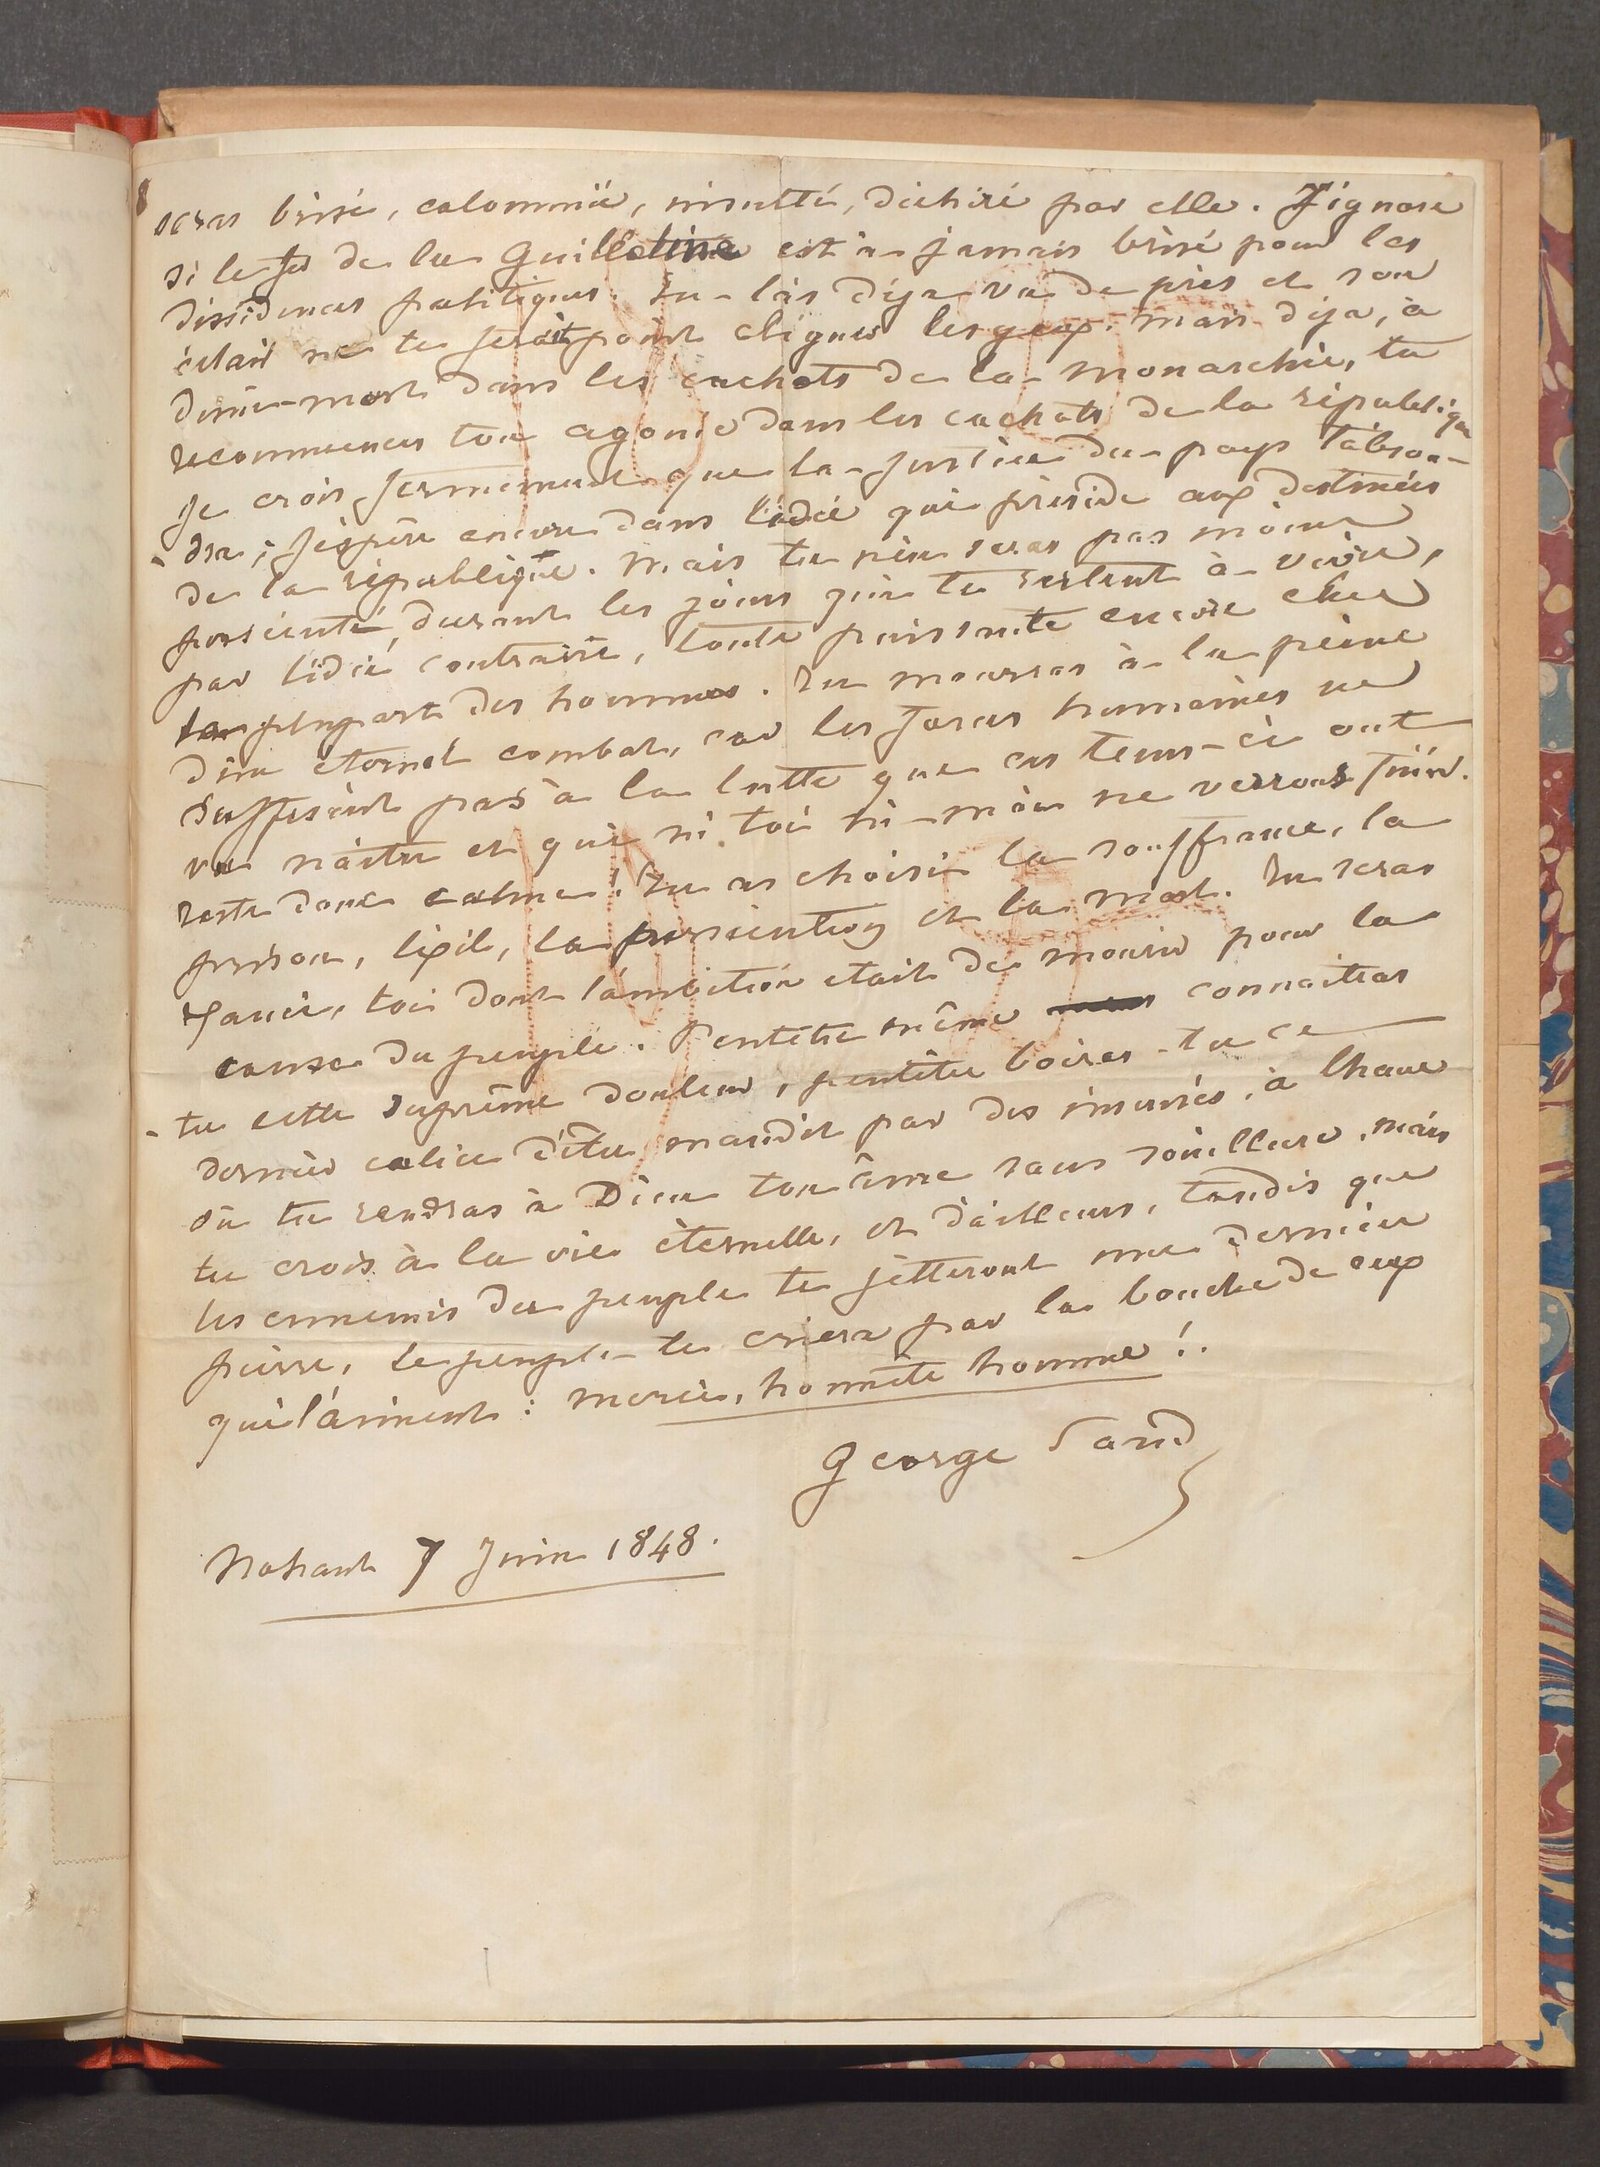 8
seras brisé, calomnié, insulté, déchiré par elle. J'ignore
si le fer de la Guillotine est à jamais brisé pour les
dissidences politiques. Tu l'as déja vu de près et son
éclair ne te ferait point cligner les yeux. Mais déja, à
demi-mort dans les cachots de la monarchie, tu
recommences ton agonie dans les cachots de la république
Je crois fermement que la justice du pays t'absou-
dra ; j'espère encore dans l'idée qui préside aux destinées
de la république. Mais tu n'en seras pas moins
persécuté, durant les jours qui te restent à vivre,
par l'idée contraire, toute puissante encore chez
la plupart des hommes. Tu mourras à la peine
d'un eternel combat, car les forces humaines ne
suffisent pas à la lutte que ces tems-ci ont
vu naître et que ni toi ni moi ne verrons finir.
reste donc calme! Tu as choisi la souffrance, la
prison, l'exil, la persécution et la mort. Tu seras
exaucé, toi dont l'ambition etait de mourir pour la
cause du peuple. Peutêtre même connaitras
-tu cette suprême douleur, peutêtre boiras-tu ce
dernier calice d'être maudit par des insensés, à l'heure
où tu rendras à Dieu ton âme sans souillure. Mais
tu crois à la vie éternelle, et d'ailleurs, tandis que
les ennemis du peuple te jetteront une dernière
pierre, le peuple te criera par la bouche de ceux
qui t'aiment : merci, honnête homme!.
George Sand
Nohant 7 Juin 1848.